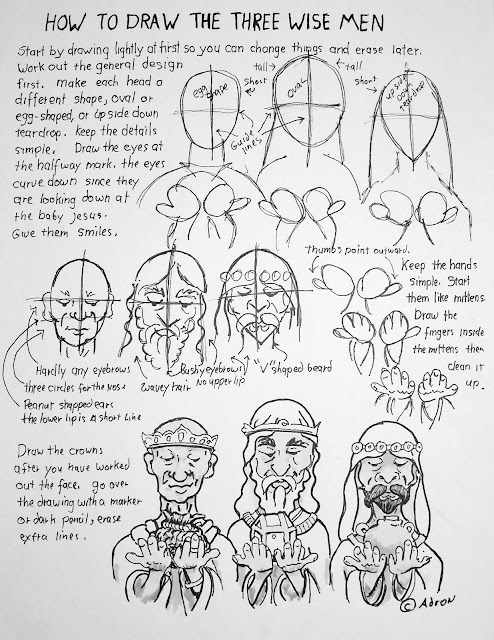 HOW TO DRAW THE THREE WISE MEN
Start by drawing lightly at first so you can change things and erase later.
Work out the general design
first. make each head a
different shape, oval or
egg-shaped, or upside down
teardrop. keep the details
simple. Draw the eyes at
the halfway mark. the eyes
curve down since they
are looking down at
the baby Jesus.
Give them smiles.
tall
tall
short
short
egg shape
OVAL
upside
down
teardrop
Guide
lines
Thumbs point outward.
Keep the hands
simple. Start
them like mittens.
Draw the
fingers inside
the mittens then
clean it
up.
Hardly any eyebrows
three circles for the nose
Peanut shapped ears
the lower lip is a short line
Wavey hair
Bushy eyebrows
No upper lip
"V" shaped beard
Draw the crowns
after you have worked
out the face. go over
the drawing with a marker
or dark pencil, erase
extra lines.
© Adron